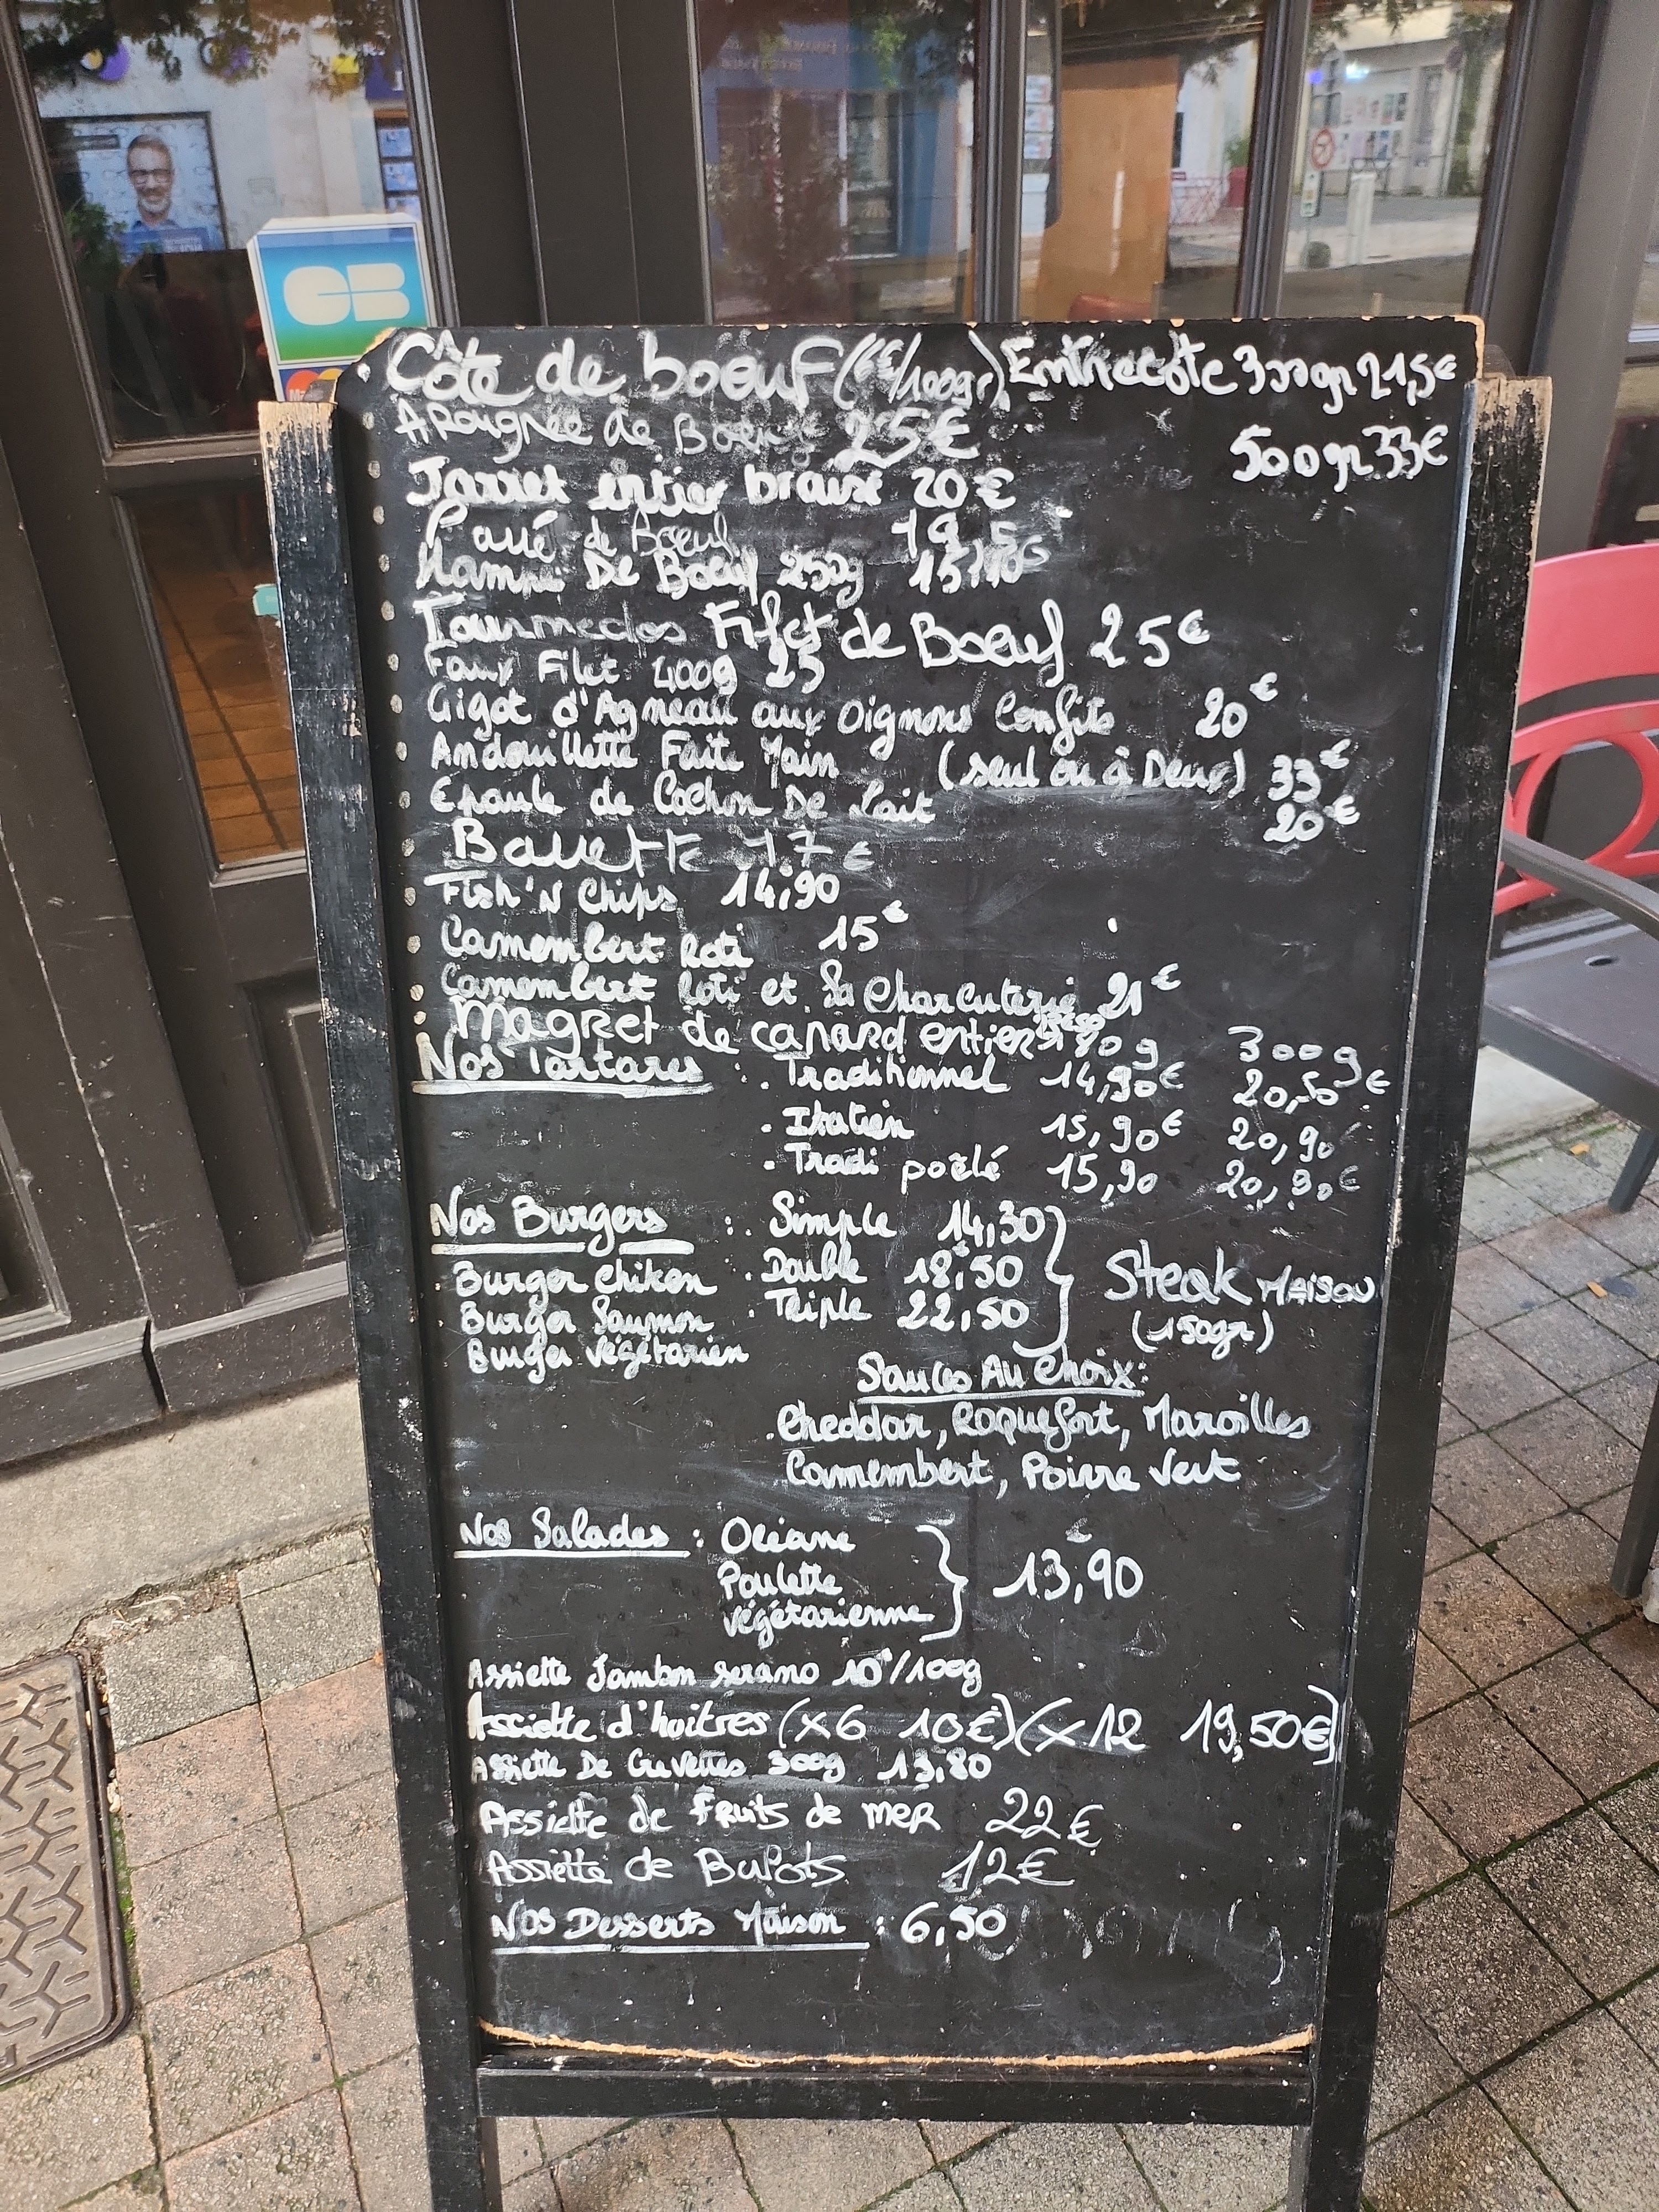 CB
Côte de boeuf (6€/100gr) Entrecôte 300gr 21,5€
Araignée de Boeuf 25€ 500gr 33€
Jarret entier braisé 20€
Pavé de Boeuf 19
Hampe De Boeuf 250g
Tournedos Filet de Boeuf 25€
Faux Filet 400g 25
Gigot d'Agneau aux Oignons Confits 20€
Andouillette Fait Main (seul ou à Deux) 33€
Epaule de Cochon De Lait 20€
Bavette 17€
Fish'N Chips 14,90
Camembert Roti 15€
Camembert Roti et Sa Charcuterie 21€
Magret de canard entier
180g 300g
Nos Tartares : . Traditionnel 14,90€ 20,50€
. Italien 15,90€ 20,90
. Tradi poêlé 15,90 20,90€
Nos Burgers : . Simple 14,30
Burger Chiken . Double 18,50 Steak MAISON
Burger Saumon . Triple 22,50 (150gr)
Burger Végétarien
Sauces Au Choix :
. Cheddar, Roquefort, Maroilles
Camembert, Poivre Vert
Nos Salades : Océane
Poulette 13,90€
Végétarienne
Assiette Jambon serano 10€/100g
Assiette d'huitres (x6 10€) (x12 19,50€)
Assiette De Crevettes 300g 13,80
Assiette de Fruits de mer 22€
Assiette de Bulots 12€
Nos Desserts Maison : 6,50